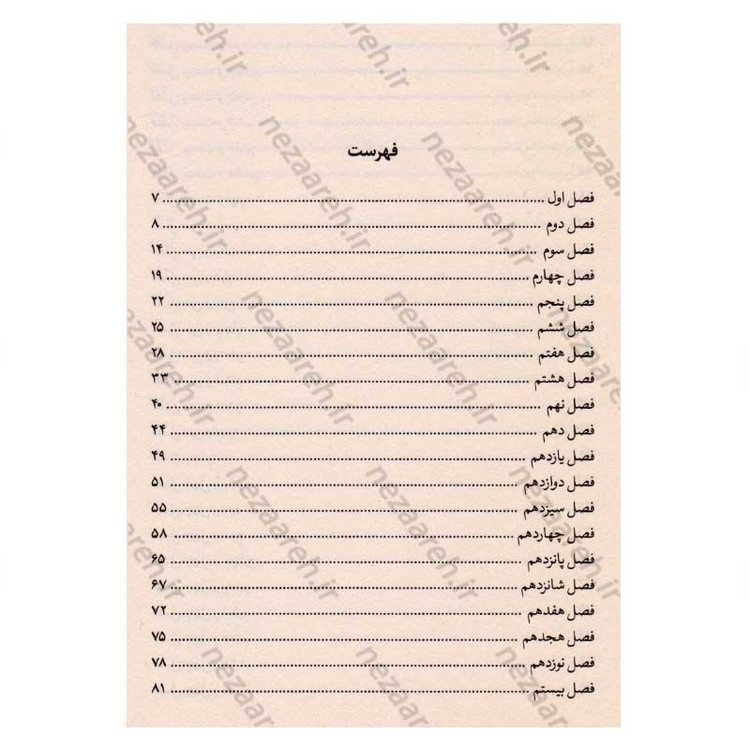 فهرست
فصل اول ........ ۷
فصل دوم ........ ۸
فصل سوم ........ ۱۴
فصل چهارم ........ ۱۹
فصل پنجم ........ ۲۲
فصل ششم ........ ۲۵
فصل هفتم ........ ۲۸
فصل هشتم ........ ۳۳
فصل نهم ........ ۴۰
فصل دهم ........ ۴۴
فصل یازدهم ........ ۴۹
فصل دوازدهم ........ ۵۱
فصل سیزدهم ........ ۵۵
فصل چهاردهم ........ ۵۸
فصل پانزدهم ........ ۶۵
فصل شانزدهم ........ ۶۷
فصل هفدهم ........ ۷۲
فصل هجدهم ........ ۷۵
فصل نوزدهم ........ ۷۸
فصل بیستم ........ ۸۱
nezaareh.ir